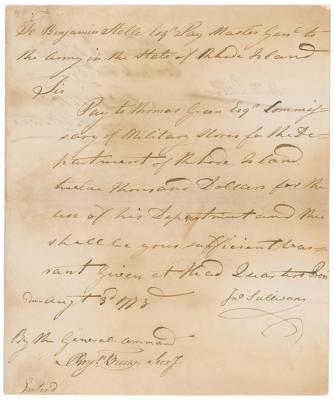 To Benjamin Stelle Esqr. Pay Master Genl. to
the Army in the State of Rhode Island
Sir
Pay to Thomas Green Esqr. Commis-
sary of Military Stores for the De-
partment of Rhode Island,
twelve thousand Dollars for the
use of his Department and this
shall be your sufficient War-
rant Given at Head Quarters Provi
dence Augt 3d 1778
Jno Sullivan
By the Generals command
Secy
Enterd